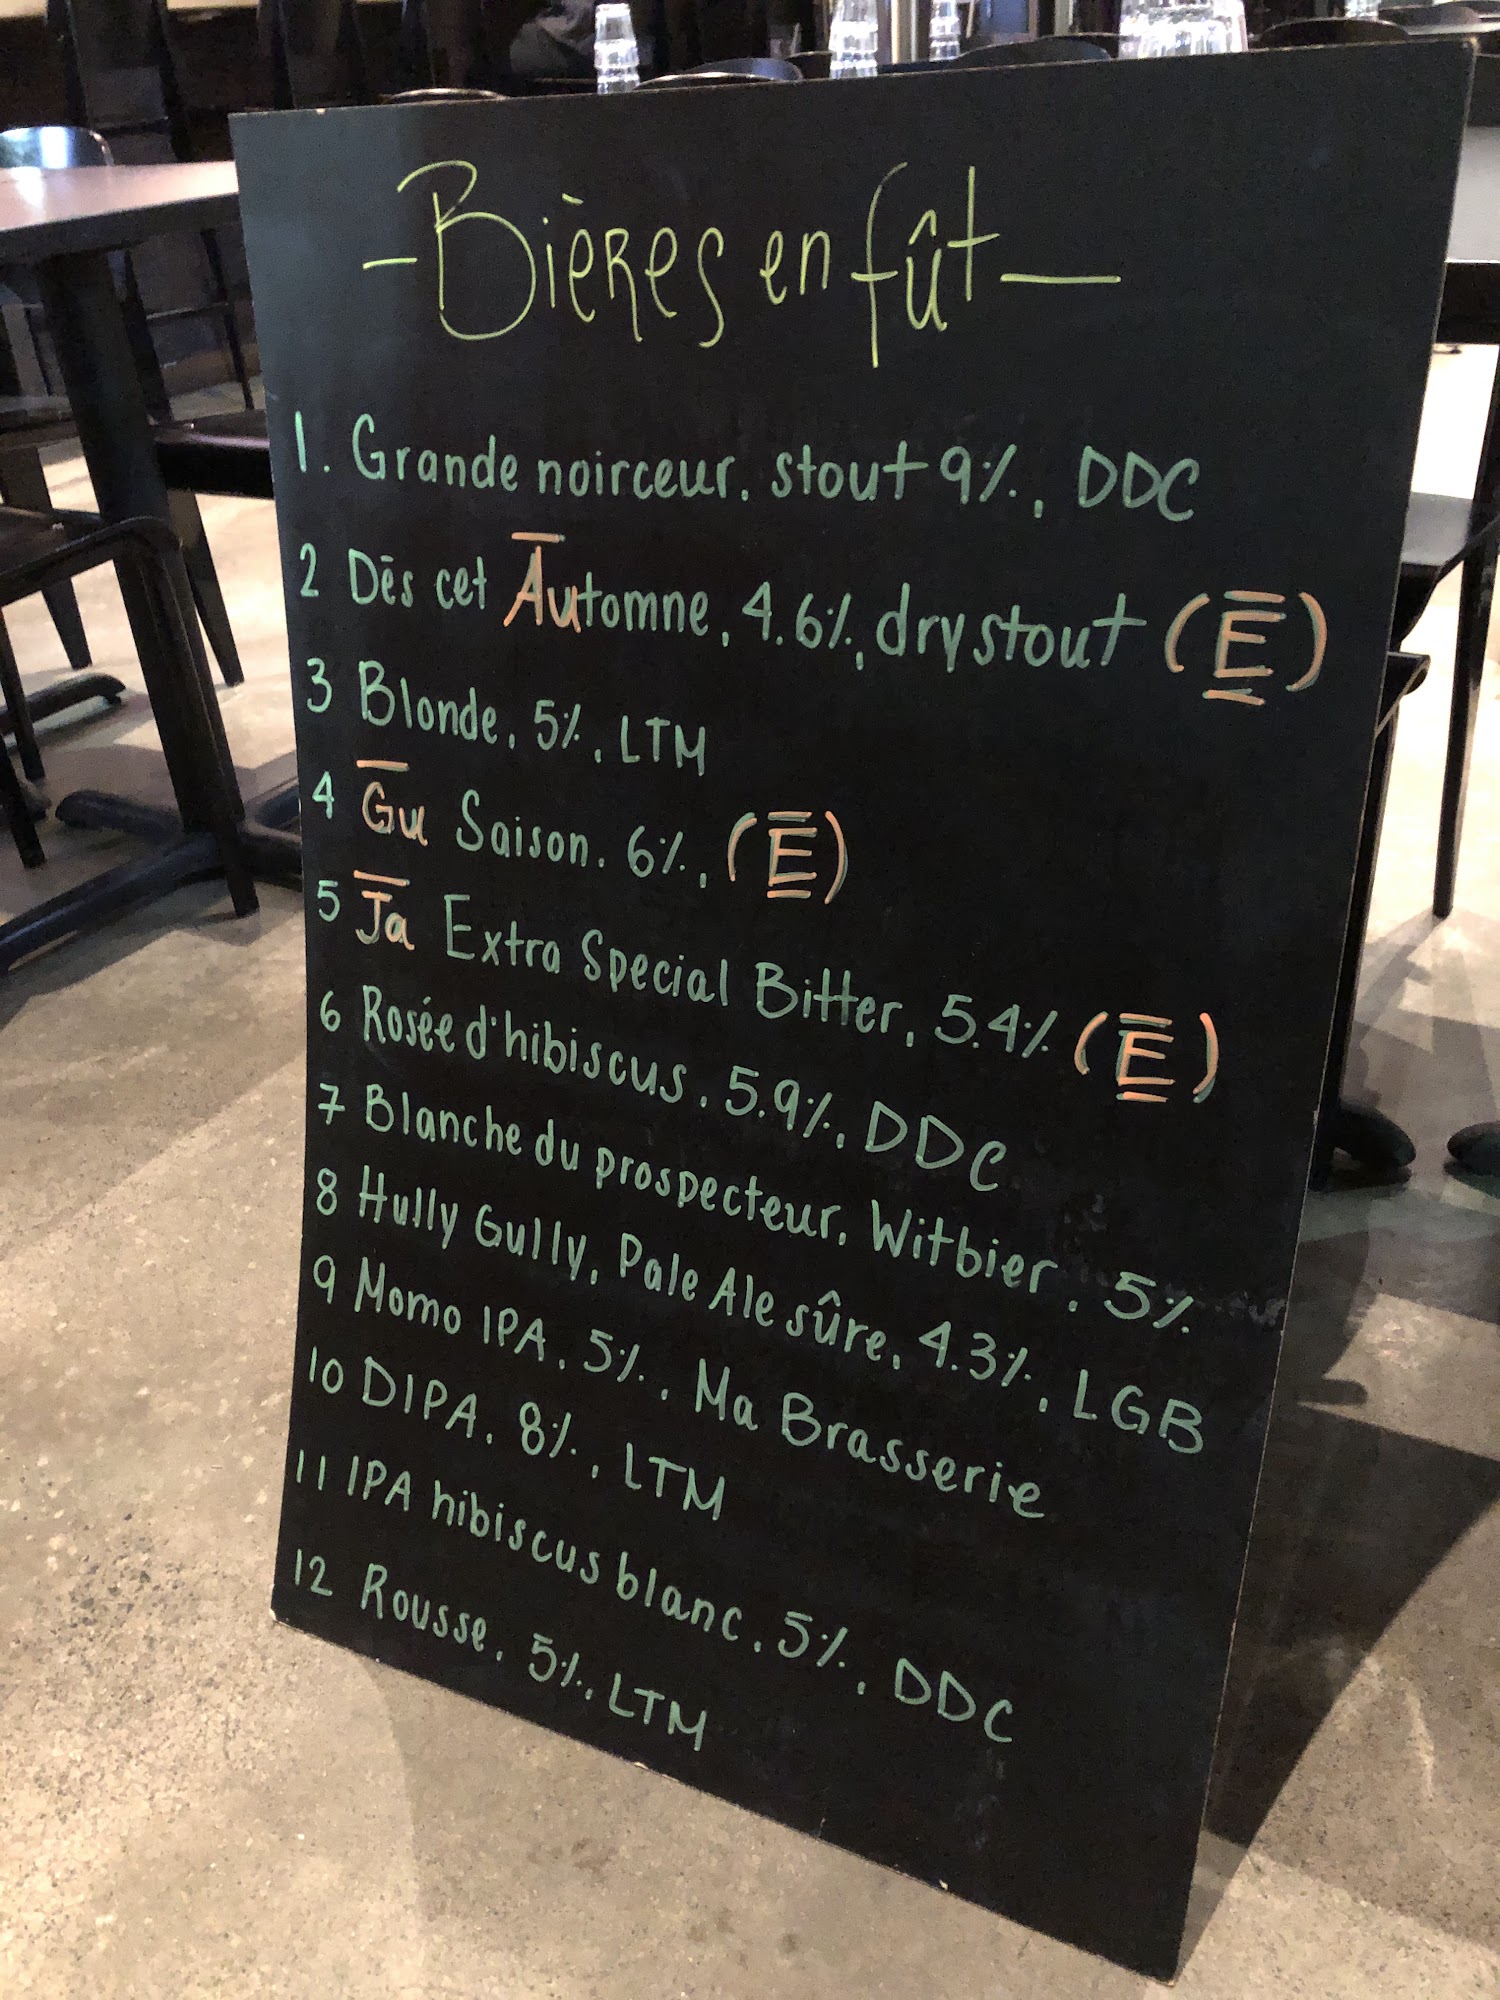 - Bières en fût -
1. Grande noirceur. stout 9%, DDC
2 Dès cet Automne, 4.6%, dry stout (E)
3 Blonde. 5%, LTM
4 Gu Saison. 6%, (E)
5 Ja Extra Special Bitter, 5.4% (E)
6 Rosée d'hibiscus. 5.9%, DDC
7 Blanche du prospecteur. Witbier. 5%
8 Hully Gully, Pale Ale sûre, 4.3%, LGB
9 Momo IPA. 5%. Ma Brasserie
10 DIPA. 8%. LTM
11 IPA hibiscus blanc. 5%. DDC
12 Rousse. 5%, LTM